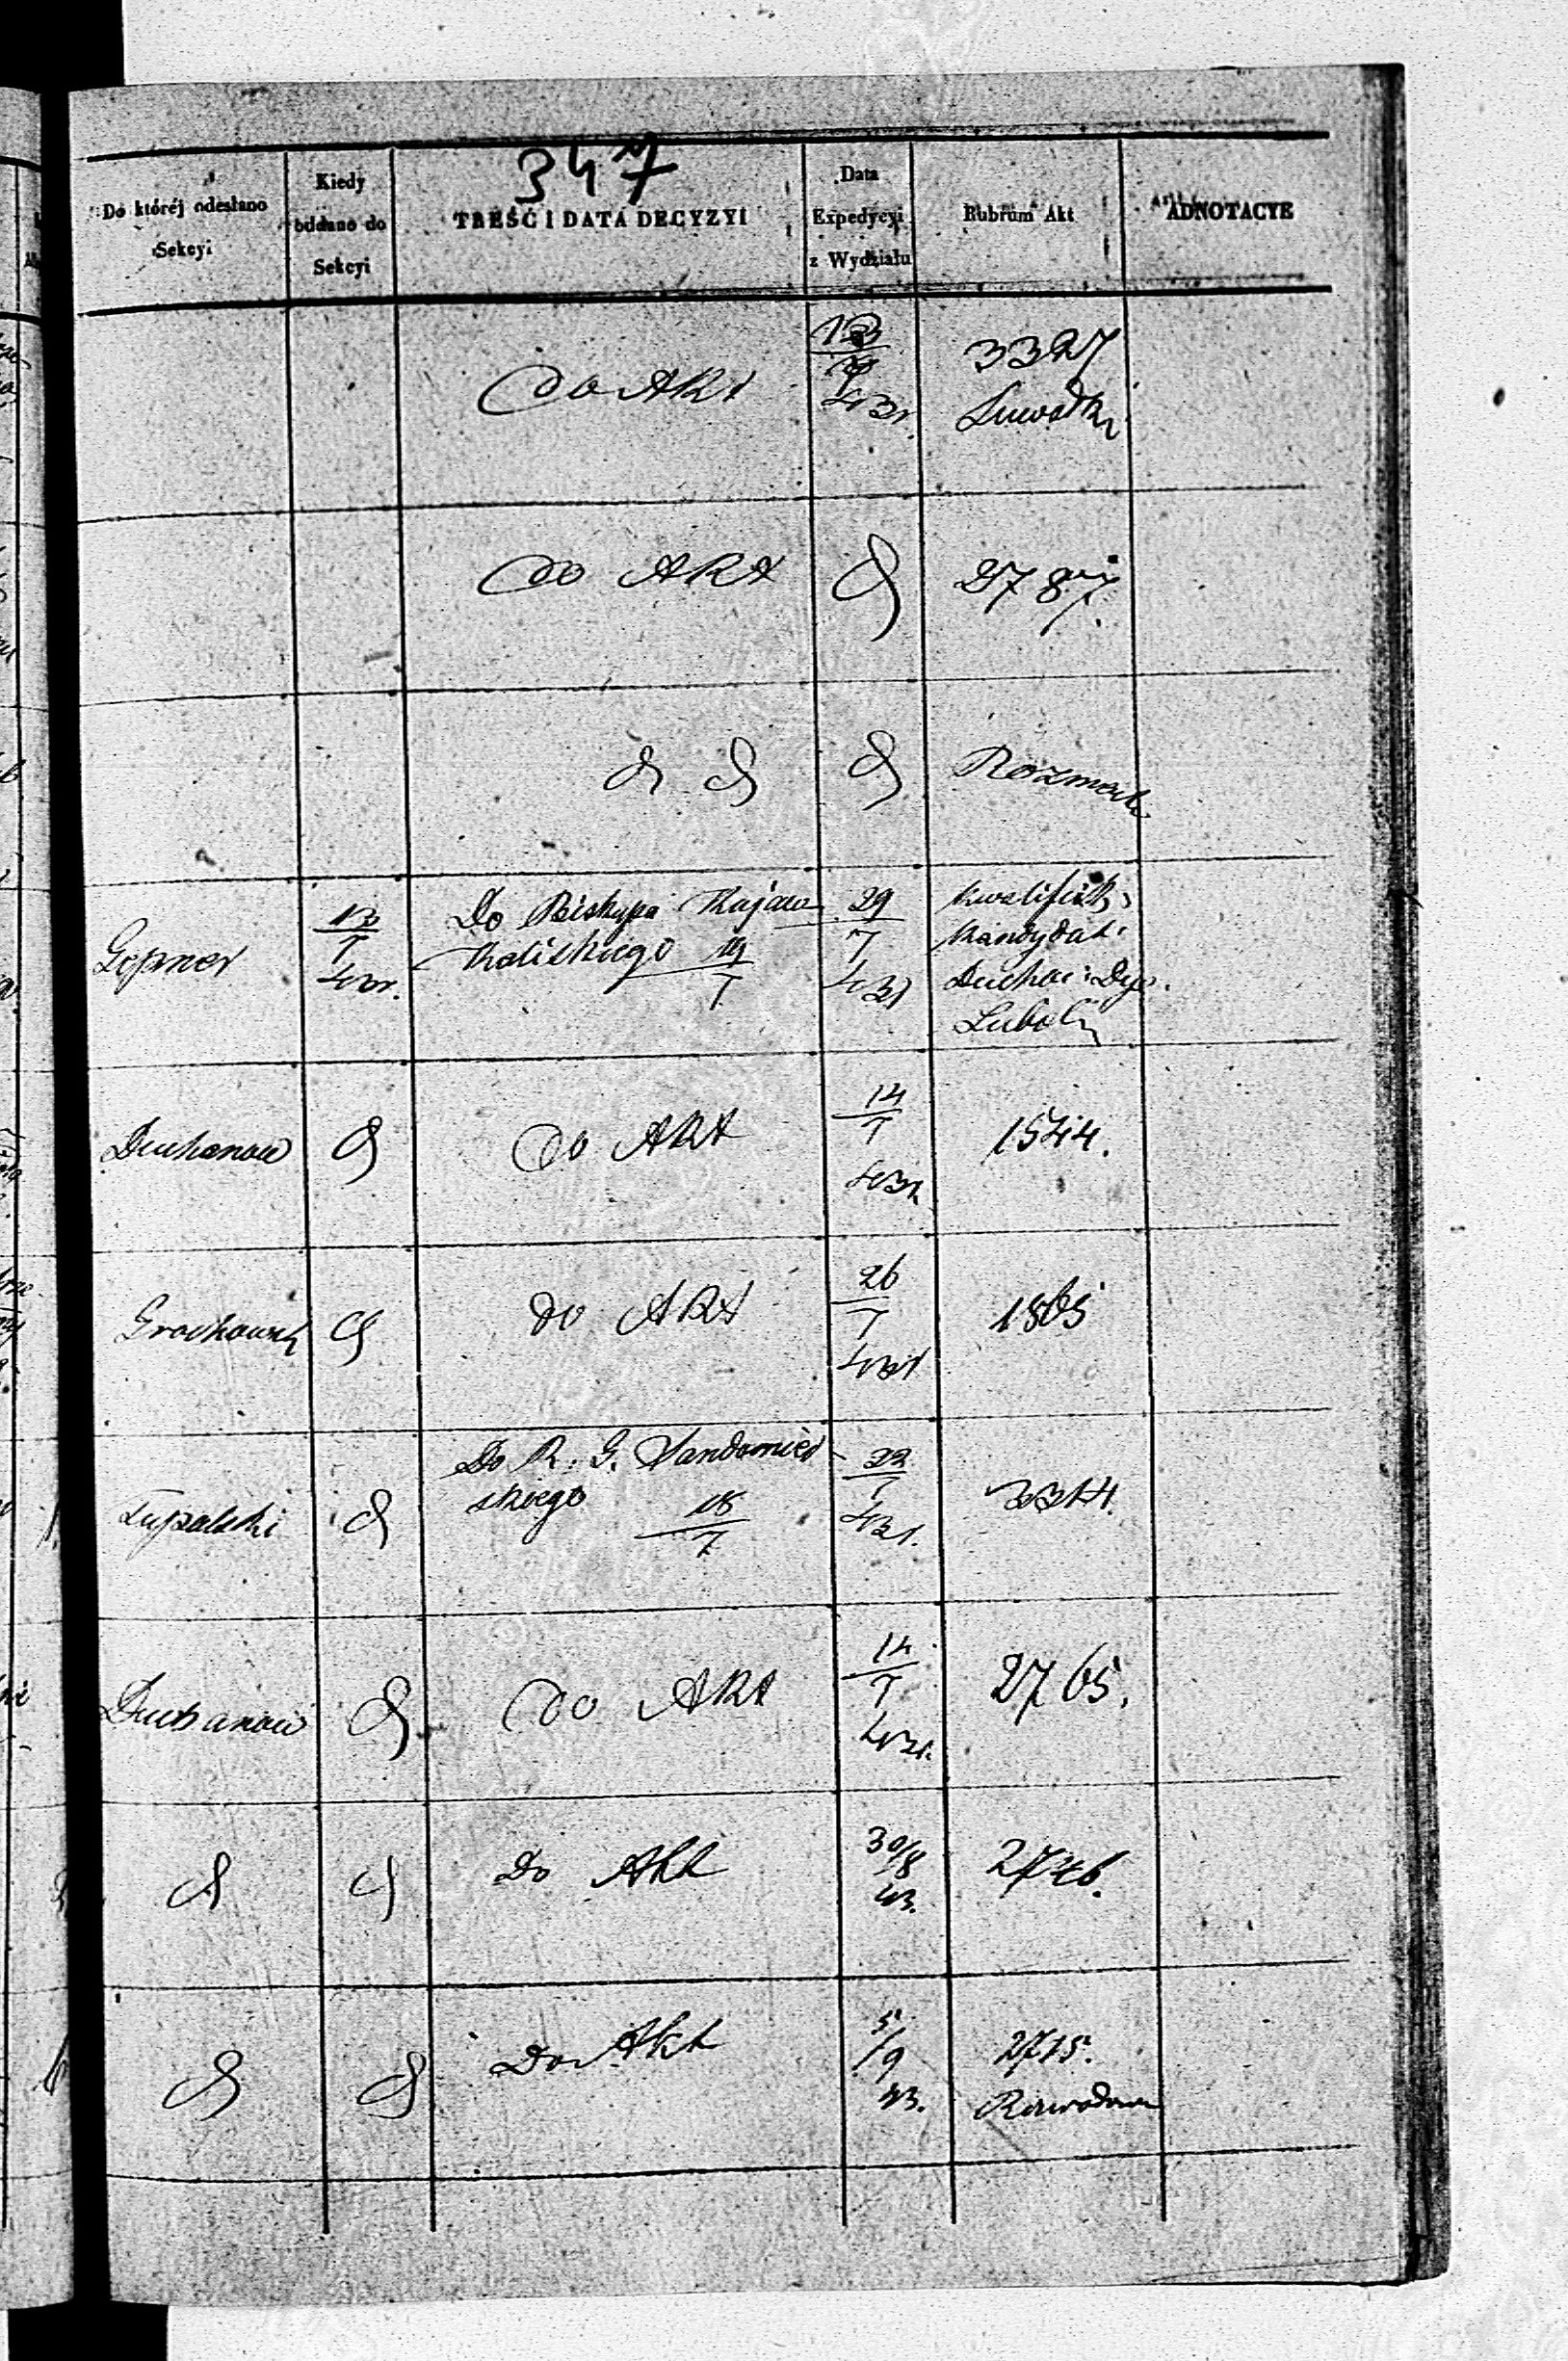 347
Do któréj odesłano
Sekcyi
Kiedy
oddano do
Sekcyi
TREŚĆ I DATA DECYZYI
Data
Expedycyi
z Wydziału
Rubrum Akt
ADNOTACYE
Do Akt
43 r.
3327
Suwałki
Do Akt
2787.
Rozmait
Gepner
13
7
43 r.
Do Biskupa Kujaw
Kaliskiego
7
29
7
43 r
Kwalifik.
Kandydat.
Duchow: Dye.
Lubel
Duchanow
Do Akt
14
7
43 r
1544.
Grochowsk
Do Akt
26
7
43 r
1865
Łupalski
Do R: G. Sandomier
skiego
18
7
22
7
43 r.
3314.
Duchanow
Do Akt
14
7
43 r.
2765.
Do Akt
30/8
43.
2746.
Do Akt
5/9
43.
2715.